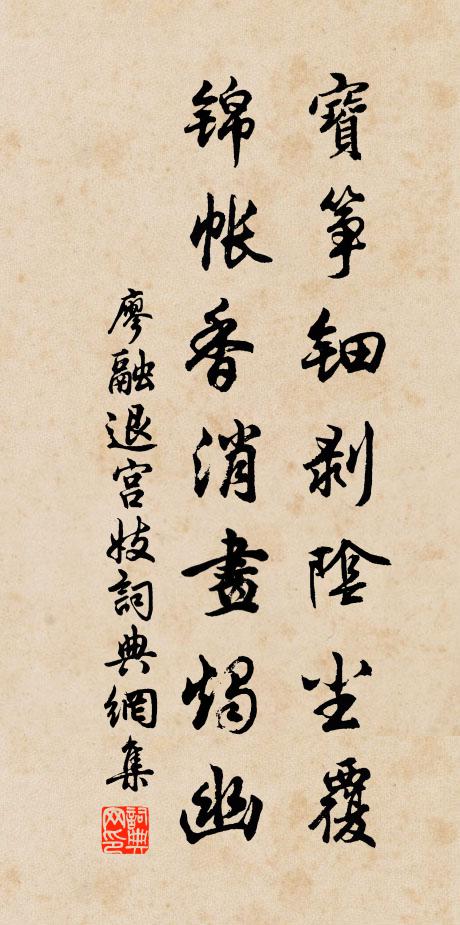 寶箏鈿剥陰尘覆
錦帳香消畫燭幽
廖融退宫妓詞典網集
詞典网印